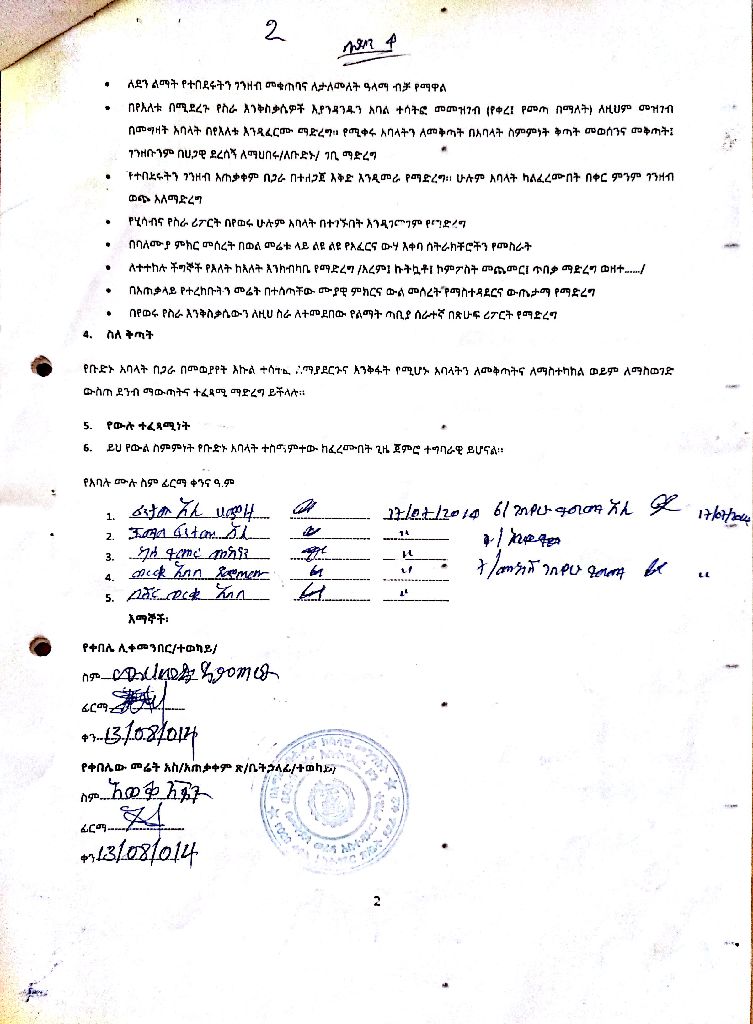 2
• ለደን ልማት የተበደሩትን ገንዘብ መቁጠባና ለታለመለት ዓላማ ብቻ የማዋል
• በየእለቱ በሚደረጉ የስራ እንቅስቃሴዎች እያንዳንዱን አባል ተሳትፎ መመዝገብ (የቀረ፤ የመጣ በማለት) ለዚህም መዝገብ
በመግዛት አባላት በየእለቱ እንዲፈርሙ ማድረግ። የሚቀሩ አባላትን ለመቅጣት በአባላት ስምምነት ቅጣት መወሰንና መቅጣት፤
ገንዘቡንም በህጋዊ ደረሰኝ ለማህበሩ/ለቡድኑ/ ገቢ ማድረግ
• የተበደሩትን ገንዘብ አጠቃቀም በጋራ በተዘጋጀ እቅድ እንዲመራ የማድረግ። ሁሉም አባላት ካልፈረሙበት በቀር ምንም ገንዘብ
ወጭ አለማድረግ
• የሂሳብና የስራ ሪፖርት በየወሩ ሁሉም አባላት በተገኙበት እንዲገመገም የማድረግ
• በባለሙያ ምክር መሰረት በወል መሬቱ ላይ ልዩ ልዩ የአፈርና ውሃ እቀባ ስትራክቸሮችን የመስራት
• ለተተከሉ ችግኞች የእለት ከእለት እንክብካቤ የማድረግ /አረም፤ ኩትኳቶ፤ ኮምፖስት መጨመር፤ ጥበቃ ማድረግ ወዘተ....../
• በአጠቃላይ የተረከቡትን መሬት በተሰጣቸው ሙያዊ ምክርና ውል መሰረት የማስተዳደርና ውጤታማ የማድረግ
• በየወሩ የስራ እንቅስቃሴውን ለዚህ ስራ ለተመደበው የልማት ጣቢያ ሰራተኛ በጽሁፍ ሪፖርት የማድረግ
4. ስለ ቅጣት
የቡድኑ አባላት በጋራ በመወያየት እኩል ተሳትፎ የማያደርጉና እንቅፋት የሚሆኑ አባላትን ለመቅጣትና ለማስተካከል ወይም ለማስወገድ
ውስጠ ደንብ ማውጣትና ተፈጻሚ ማድረግ ይችላሉ።
5. የውሉ ተፈጻሚነት
6. ይህ የውል ስምምነት የቡድኑ አባላት ተስማምተው ከፈረሙበት ጊዜ ጀምሮ ተግባራዊ ይሆናል።
የአባሉ ሙሉ ስም ፊርማ ቀንና ዓ.ም
1. ፈታው አሊ 17/07/2014 6/ አሊ 17/07/2014
2. ፈታው አሊ "
3. "
4. ወርቁ አበበ " "
5. ወርቁ አበበ "
እማኞች፡
የቀበሌ ሊቀመንበር/ተወካይ/
ስም
ፊርማ
ቀን 13/08/014
የቀበሌው መሬት አስ/አጠቃቀም ጽ/ቤትኃላፊ/ተወካይ/
ስም አወቀ
ፊርማ
ቀን 13/08/014
2